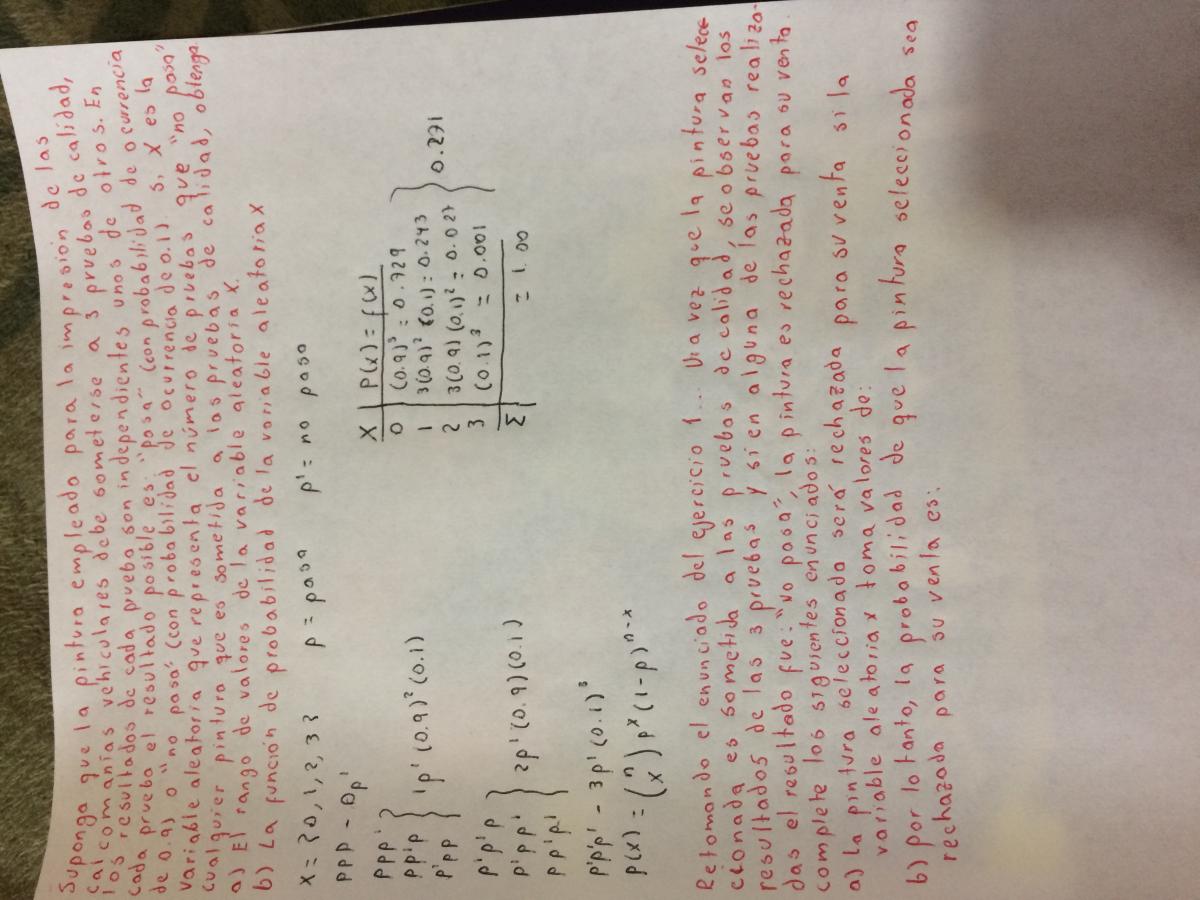 Suponga que la pintura empleado para la impresión de las
calcomanías vehiculares debe someterse a 3 pruebas de calidad,
los resultados de cada prueba son independientes unos de otros. En
cada prueba el resultado posible es "pasa" (con probabilidad de ocurrencia
de 0.9) o "no pasa" (con probabilidad de ocurrencia de 0.1) si X es la
variable aleatoria que representa el número de pruebas que "no pasa"
cualquier pintura que es sometida a las pruebas de calidad, obtenga
a) El rango de valores de la variable aleatoria X.
b) La función de probabilidad de la variable aleatoria X
X = {0,1,2,3} p = pasa p' = no pasa
ppp - 0p'
ppp'
pp'p } 1p' (0.9)² (0.1)
p'pp
p'p'p
p'pp' } 2p' (0.9)(0.1)
pp'p'
p'p'p' - 3p' (0.1)³
p(x) = (n x) pˣ (1-p)ⁿ⁻ˣ
X P(x) = f(x)
0 (0.9)³ = 0.729
1 3(0.9)² (0.1) = 0.243
2 3(0.9)(0.1)² = 0.027
3 (0.1)³ = 0.001
} 0.271
Σ = 1.00
Retomando el enunciado del ejercicio 1... Una vez que la pintura selec
cionada es sometida a las pruebas de calidad, se observan los
resultados de las 3 pruebas y si en alguna de las pruebas realiza-
das el resultado fue: "No pasa", la pintura es rechazada para su venta.
complete los siguientes enunciados:
a) La pintura seleccionada será rechazada para su venta si la
variable aleatoria x toma valores de:
b) por lo tanto, la probabilidad de que la pintura seleccionada sea
rechazada para su venta es: